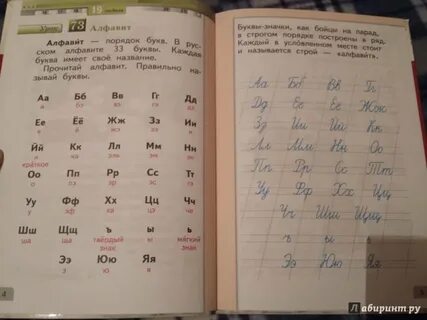 Урок 73 Алфавит
Алфавит — порядок букв. В рус-
ском алфавите 33 буквы. Каждая
буква имеет своё название.
Прочитай алфавит. Правильно на-
зывай буквы.
Аа Бб Вв Гг Дд
а бэ вэ гэ дэ
Ее Ёё Жж Зз Ии
е ё жэ зэ и
Йй Кк Лл Мм Нн
и краткое ка эль эм эн
Оо Пп Рр Сс Тт
о пэ эр эс тэ
Уу Фф Хх Цц Чч
у эф ха цэ че
Шш Щщ ъ ы ь
ша ща твёрдый знак ы мягкий знак
Ээ Юю Яя
э ю я
4
Буквы-значки, как бойцы на парад,
в строгом порядке построены в ряд.
Каждый в условленном месте стоит
и называется строй — «алфавит».
Аа Бб Вв Гг
Дд Ее Ёё Жж
Зз Ии Йй Кк
Лл Мм Нн Оо
Пп Рр Сс Тт
Уу Фф Хх Цц
Чч Шш Щщ
ъ ы ь
Ээ Юю Яя
Лабиринт.ру